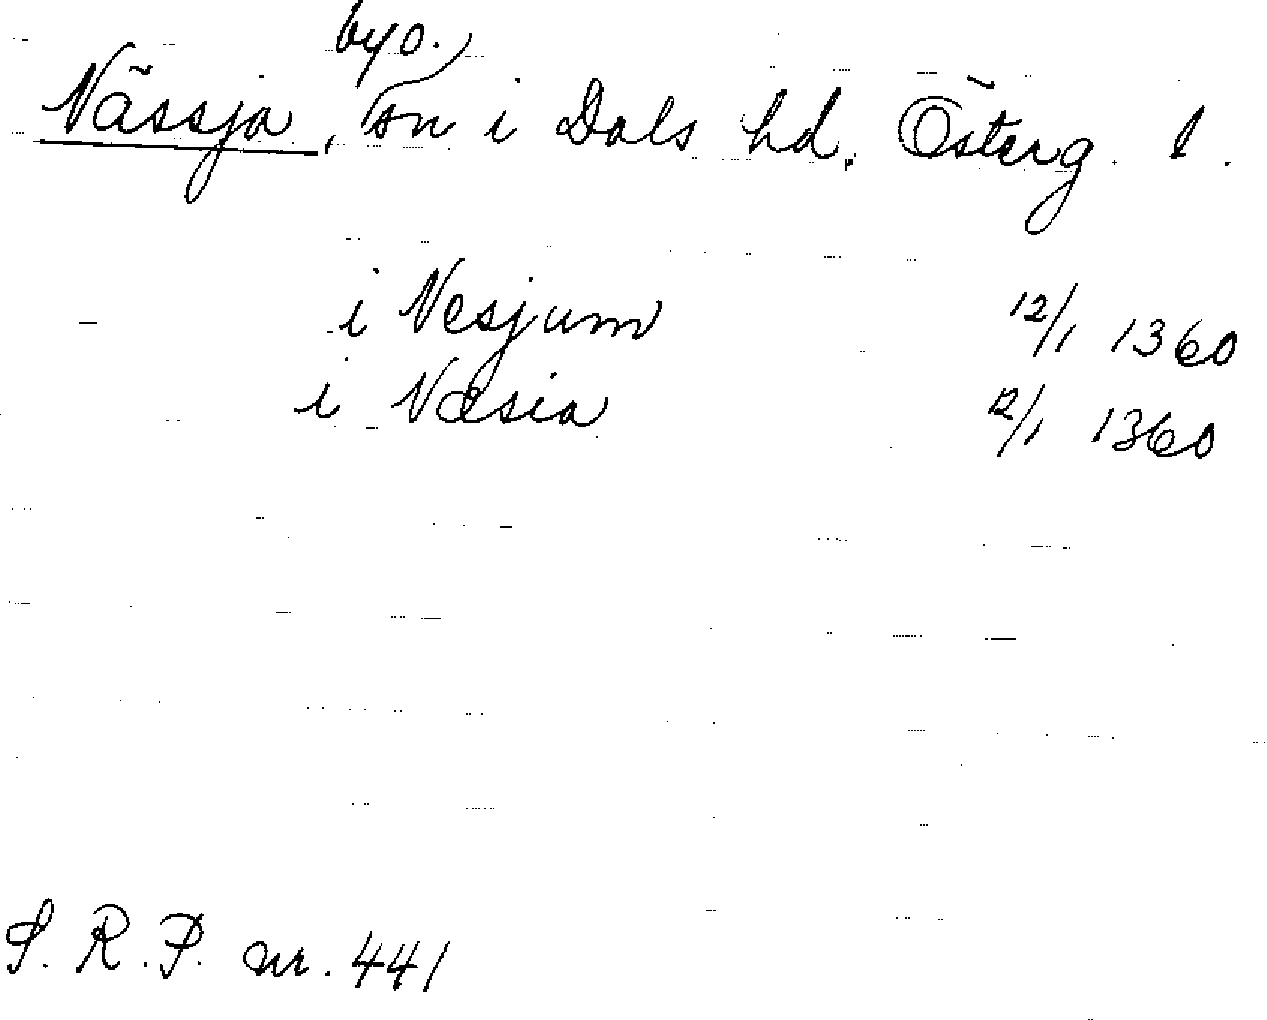 Nässja, by o. sn i Dals hd, Österg. l.
i Nesjum 12/1 1360
i Næsia 12/1 1360
S. R. P. nr. 441